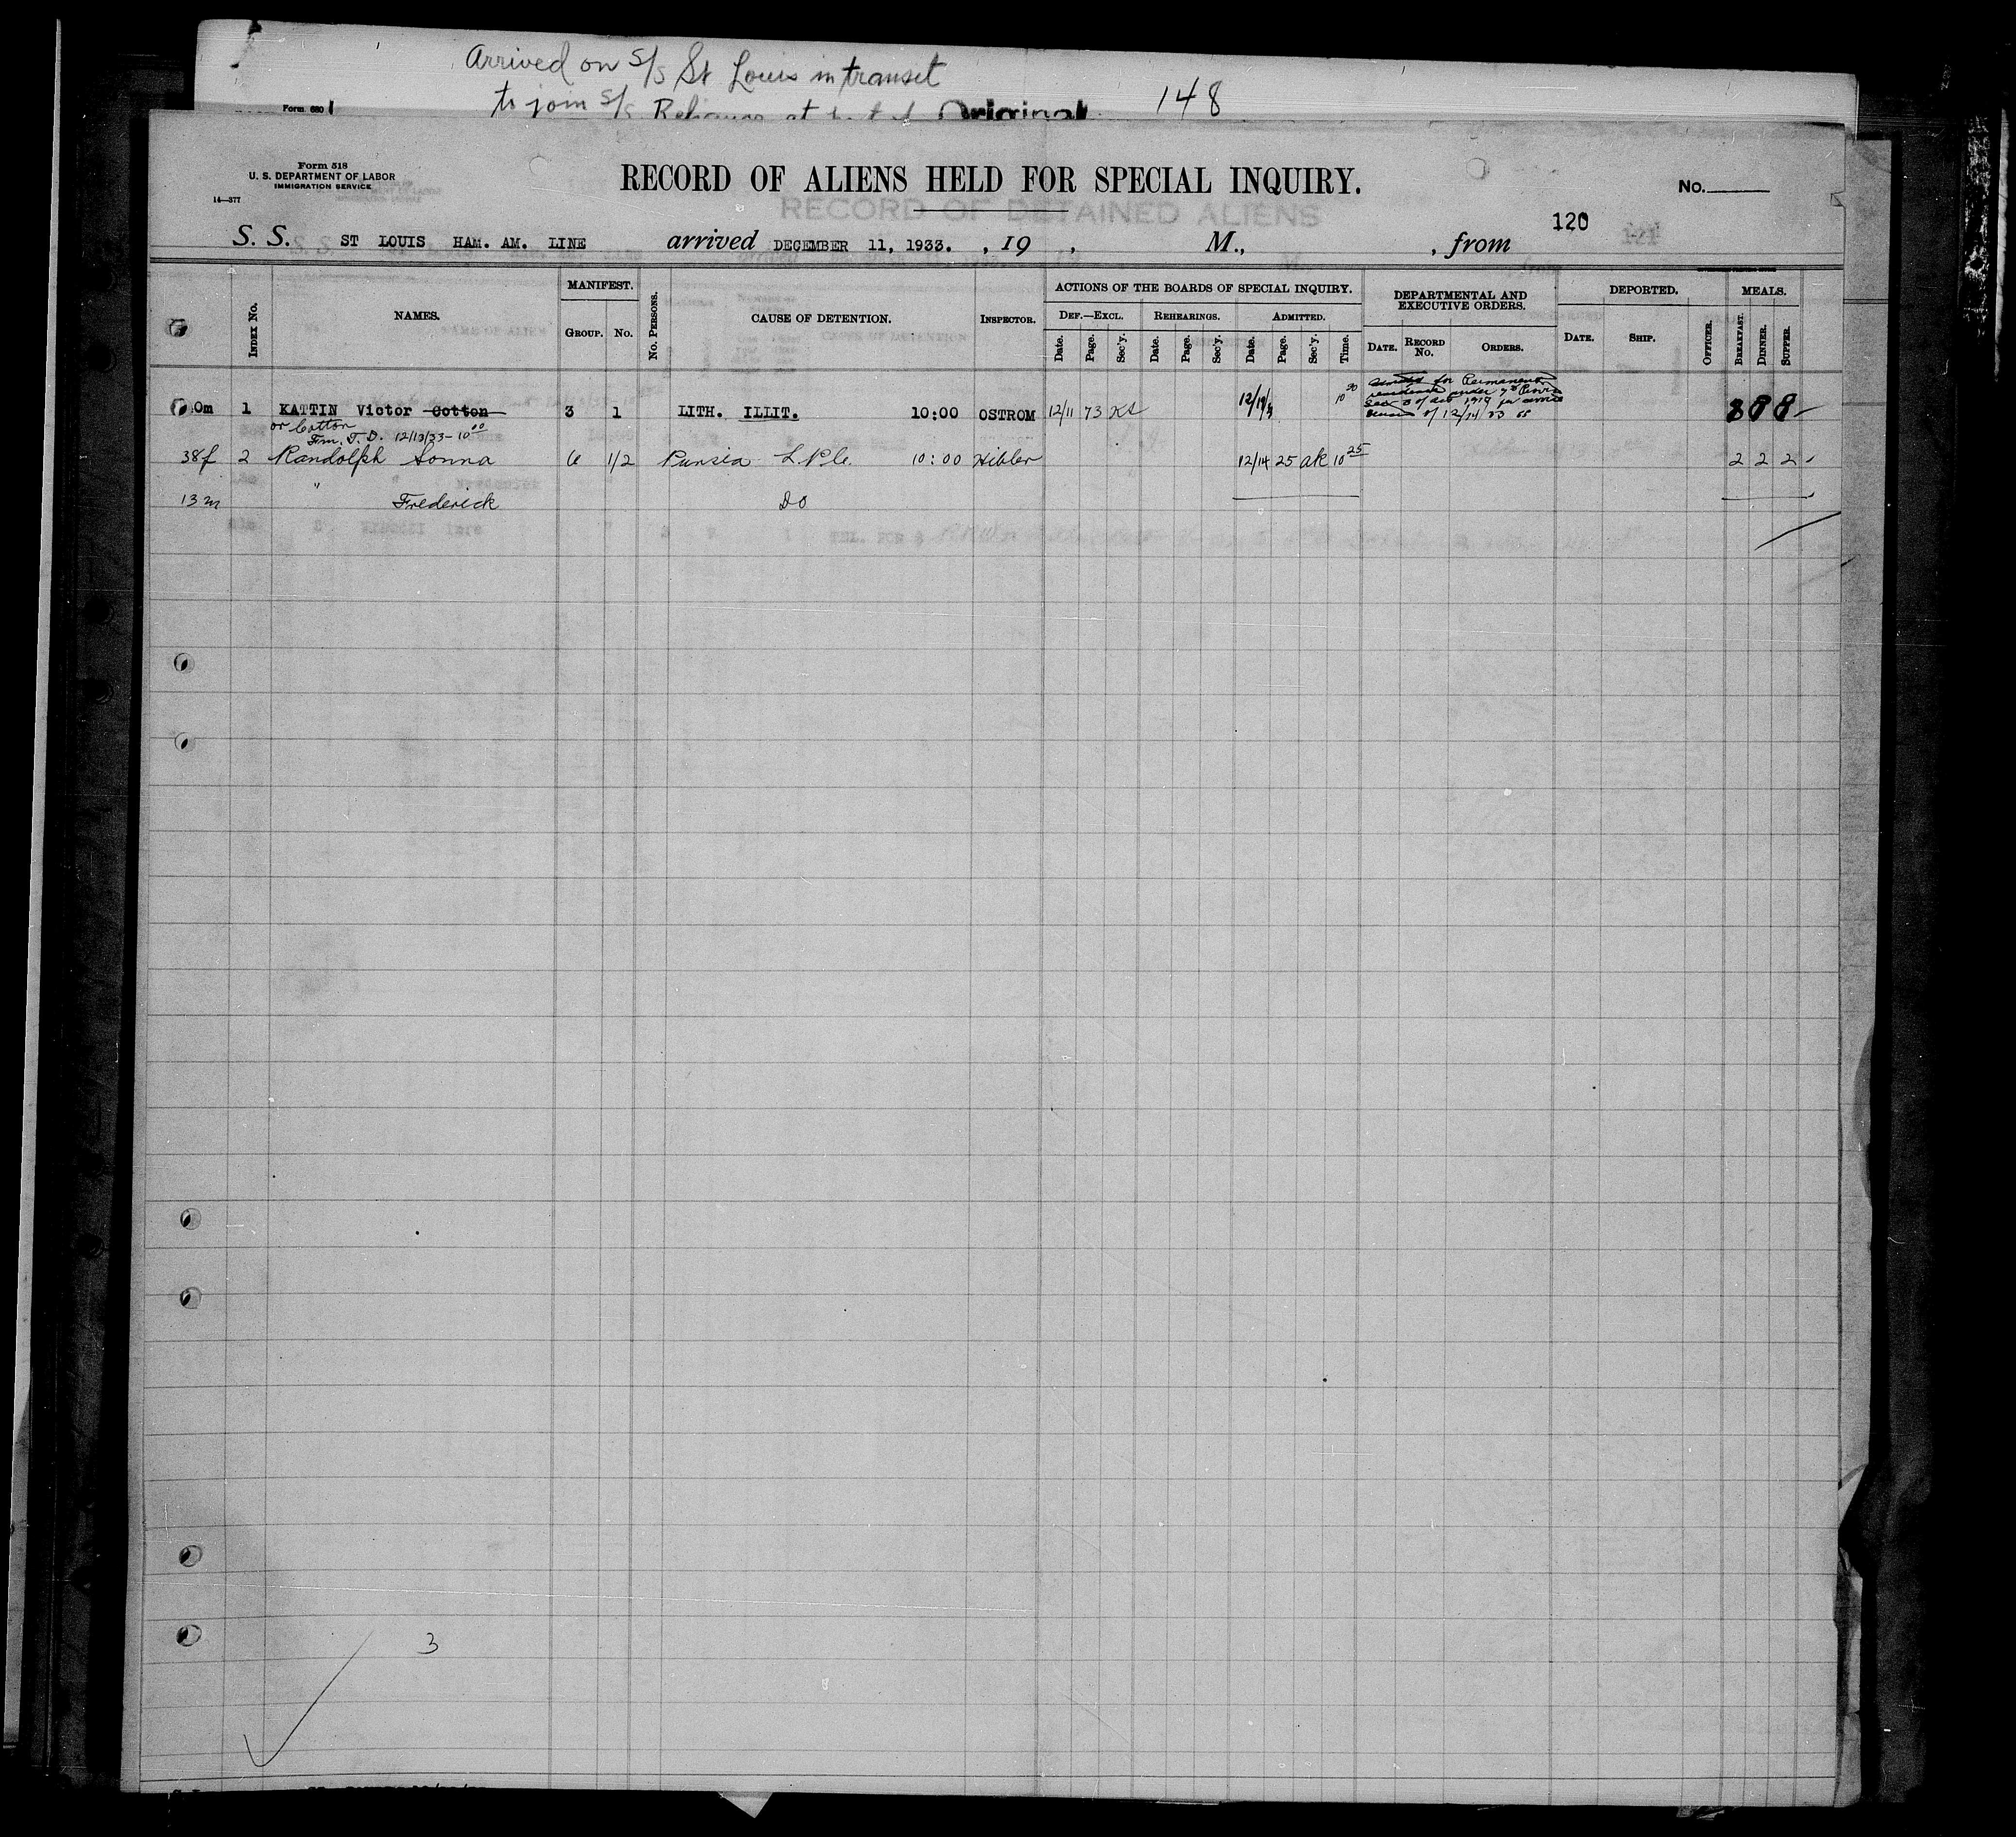 Arrived on S/S St Louis in transit
to join S/S Reliance at
Original
148
Form. 680
Form 518
U. S. DEPARTMENT OF LABOR
IMMIGRATION SERVICE
14—377
RECORD OF ALIENS HELD FOR SPECIAL INQUIRY.
No.
RECORD OF DETAINED ALIENS
120
121
S. S. ST LOUIS HAM. AM. LINE arrived DECEMBER 11, 1933. , 19 , M., , from
INDEX No. NAMES. MANIFEST. GROUP. No. No. PERSONS. CAUSE OF DETENTION. INSPECTOR.
ACTIONS OF THE BOARDS OF SPECIAL INQUIRY. DEF.—EXCL. Date. Page. Sec'y. REHEARINGS. Date. Page. Sec'y. ADMITTED. Date. Page. Sec'y. Time.
DEPARTMENTAL AND EXECUTIVE ORDERS. DATE. RECORD No. ORDERS.
DEPORTED. DATE. SHIP. OFFICER. MEALS. BREAKFAST. DINNER. SUPPER.
0m 1 KATTIN Victor Cotton 3 1 LITH. ILLIT. 10:00 OSTROM 12/11 73 KS
or Cotton
for Permanent
residence under 7th Provis
Sec 3 of Act 1917 per
of 12/14/33
12/13/33-10 00
38f 2 Randolph Sonna 6 1/2 L.P.C. 10:00 Hibler 12/14 25 AK 10 25 2 2 2
13m " Frederick Do
3